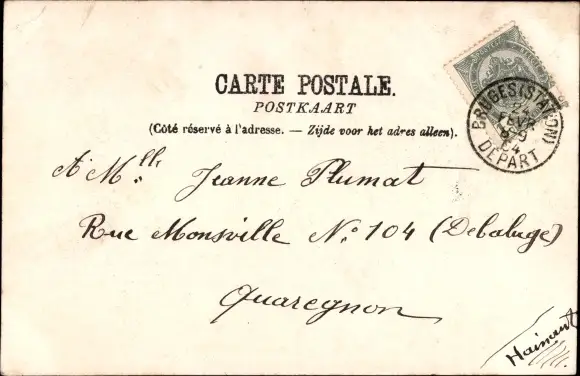 CARTE POSTALE.
POSTKAART
(Côté réservé à l'adresse. — Zijde voor het adres alleen).
BRUGES (STATION)
FEVR
8-9
04
DÉPART
A Mlle Jeanne Plumat
Rue Monsville No 104 (Debaluge)
Quaregnon
Hainaut